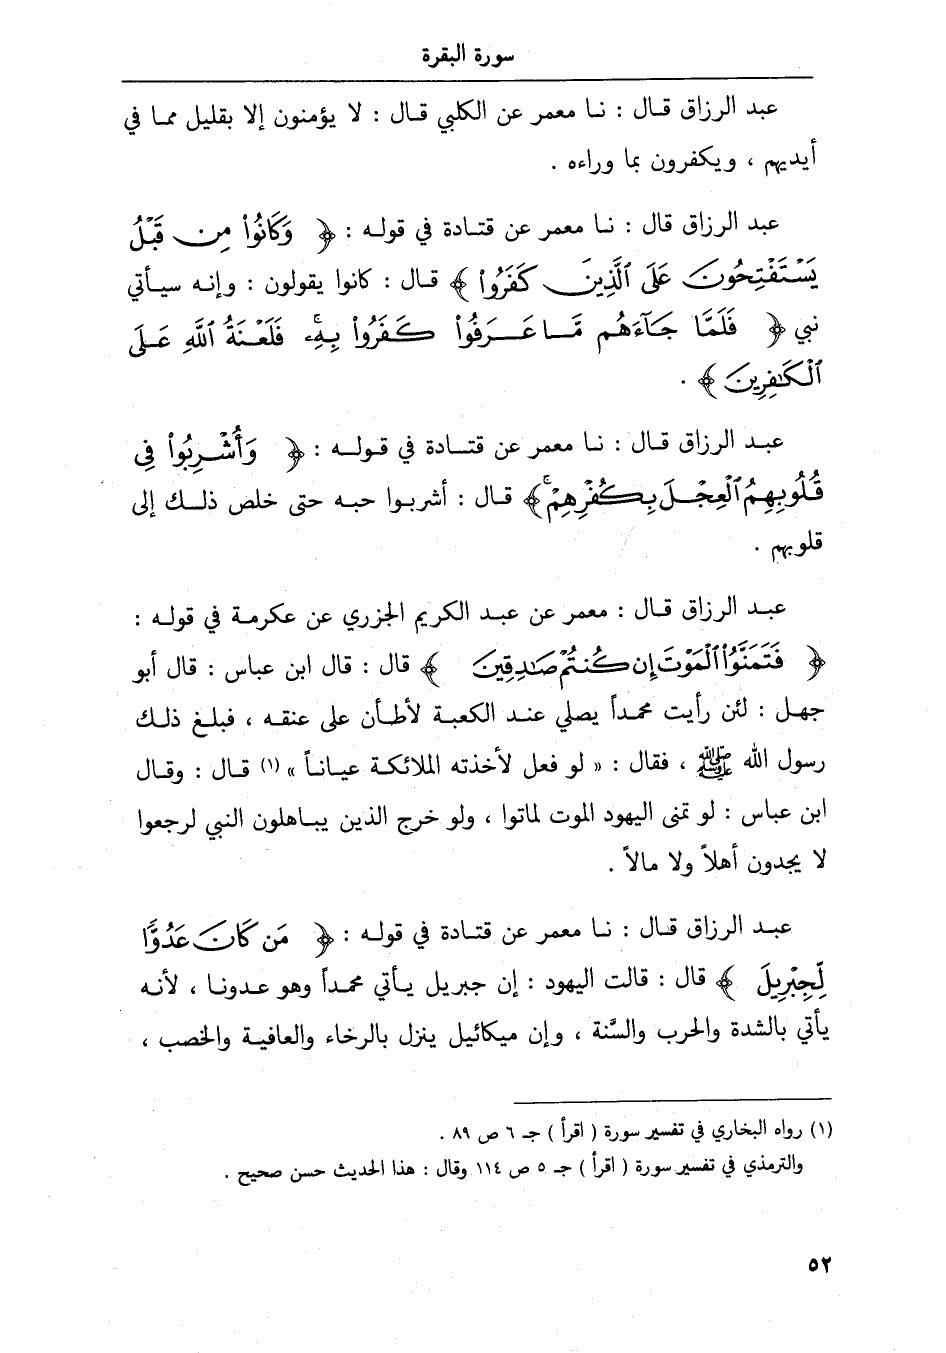 سورة البقرة
عبد الرزاق قال : نا معمر عن الكلبي قال : لا يؤمنون إلا بقليل مما في
أيديهم ، ويكفرون بما وراءه .
عبد الرزاق قال : نا معمر عن قتادة في قوله : ﴿ وَكَانُوا۟ مِن قَبْلُ
يَسْتَفْتِحُونَ عَلَى ٱلَّذِينَ كَفَرُوا۟ ﴾ قال : كانوا يقولون : وإنه سيأتي
نبي ﴿ فَلَمَّا جَآءَهُم مَّا عَرَفُوا۟ كَفَرُوا۟ بِهِۦۚ فَلَعْنَةُ ٱللَّهِ عَلَى
ٱلْكَٰفِرِينَ ﴾ .
عبد الرزاق قال : نا معمر عن قتادة في قوله : ﴿ وَأُشْرِبُوا۟ فِى
قُلُوبِهِمُ ٱلْعِجْلَ بِكُفْرِهِمْۚ ﴾ قال : أشربوا حبه حتى خلص ذلك إلى
قلوبهم .
عبد الرزاق قال : معمر عن عبد الكريم الجزري عن عكرمة في قوله :
﴿ فَتَمَنَّوُا۟ ٱلْمَوْتَ إِن كُنتُمْ صَٰدِقِينَ ﴾ قال : قال ابن عباس : قال أبو
جهل : لئن رأيت محمداً يصلي عند الكعبة لأطأن على عنقه ، فبلغ ذلك
رسول الله ﷺ ، فقال : « لو فعل لأخذته الملائكة عياناً » (١) قال : وقال
ابن عباس : لو تمنى اليهود الموت لماتوا ، ولو خرج الذين يباهلون النبي لرجعوا
لا يجدون أهلاً ولا مالاً .
عبد الرزاق قال : نا معمر عن قتادة في قوله : ﴿ مَن كَانَ عَدُوًّا
لِّجِبْرِيلَ ﴾ قال : قالت اليهود : إن جبريل يأتي محمداً وهو عدونا ، لأنه
يأتي بالشدة والحرب والسَّنة ، وإن ميكائيل ينزل بالرخاء والعافية والخصب ،
(١) رواه البخاري في تفسير سورة ( اقرأ ) جـ ٦ ص ٨٩ .
والترمذي في تفسير سورة ( اقرأ ) جـ ٥ ص ١١٤ وقال : هذا الحديث حسن صحيح .
٥٢